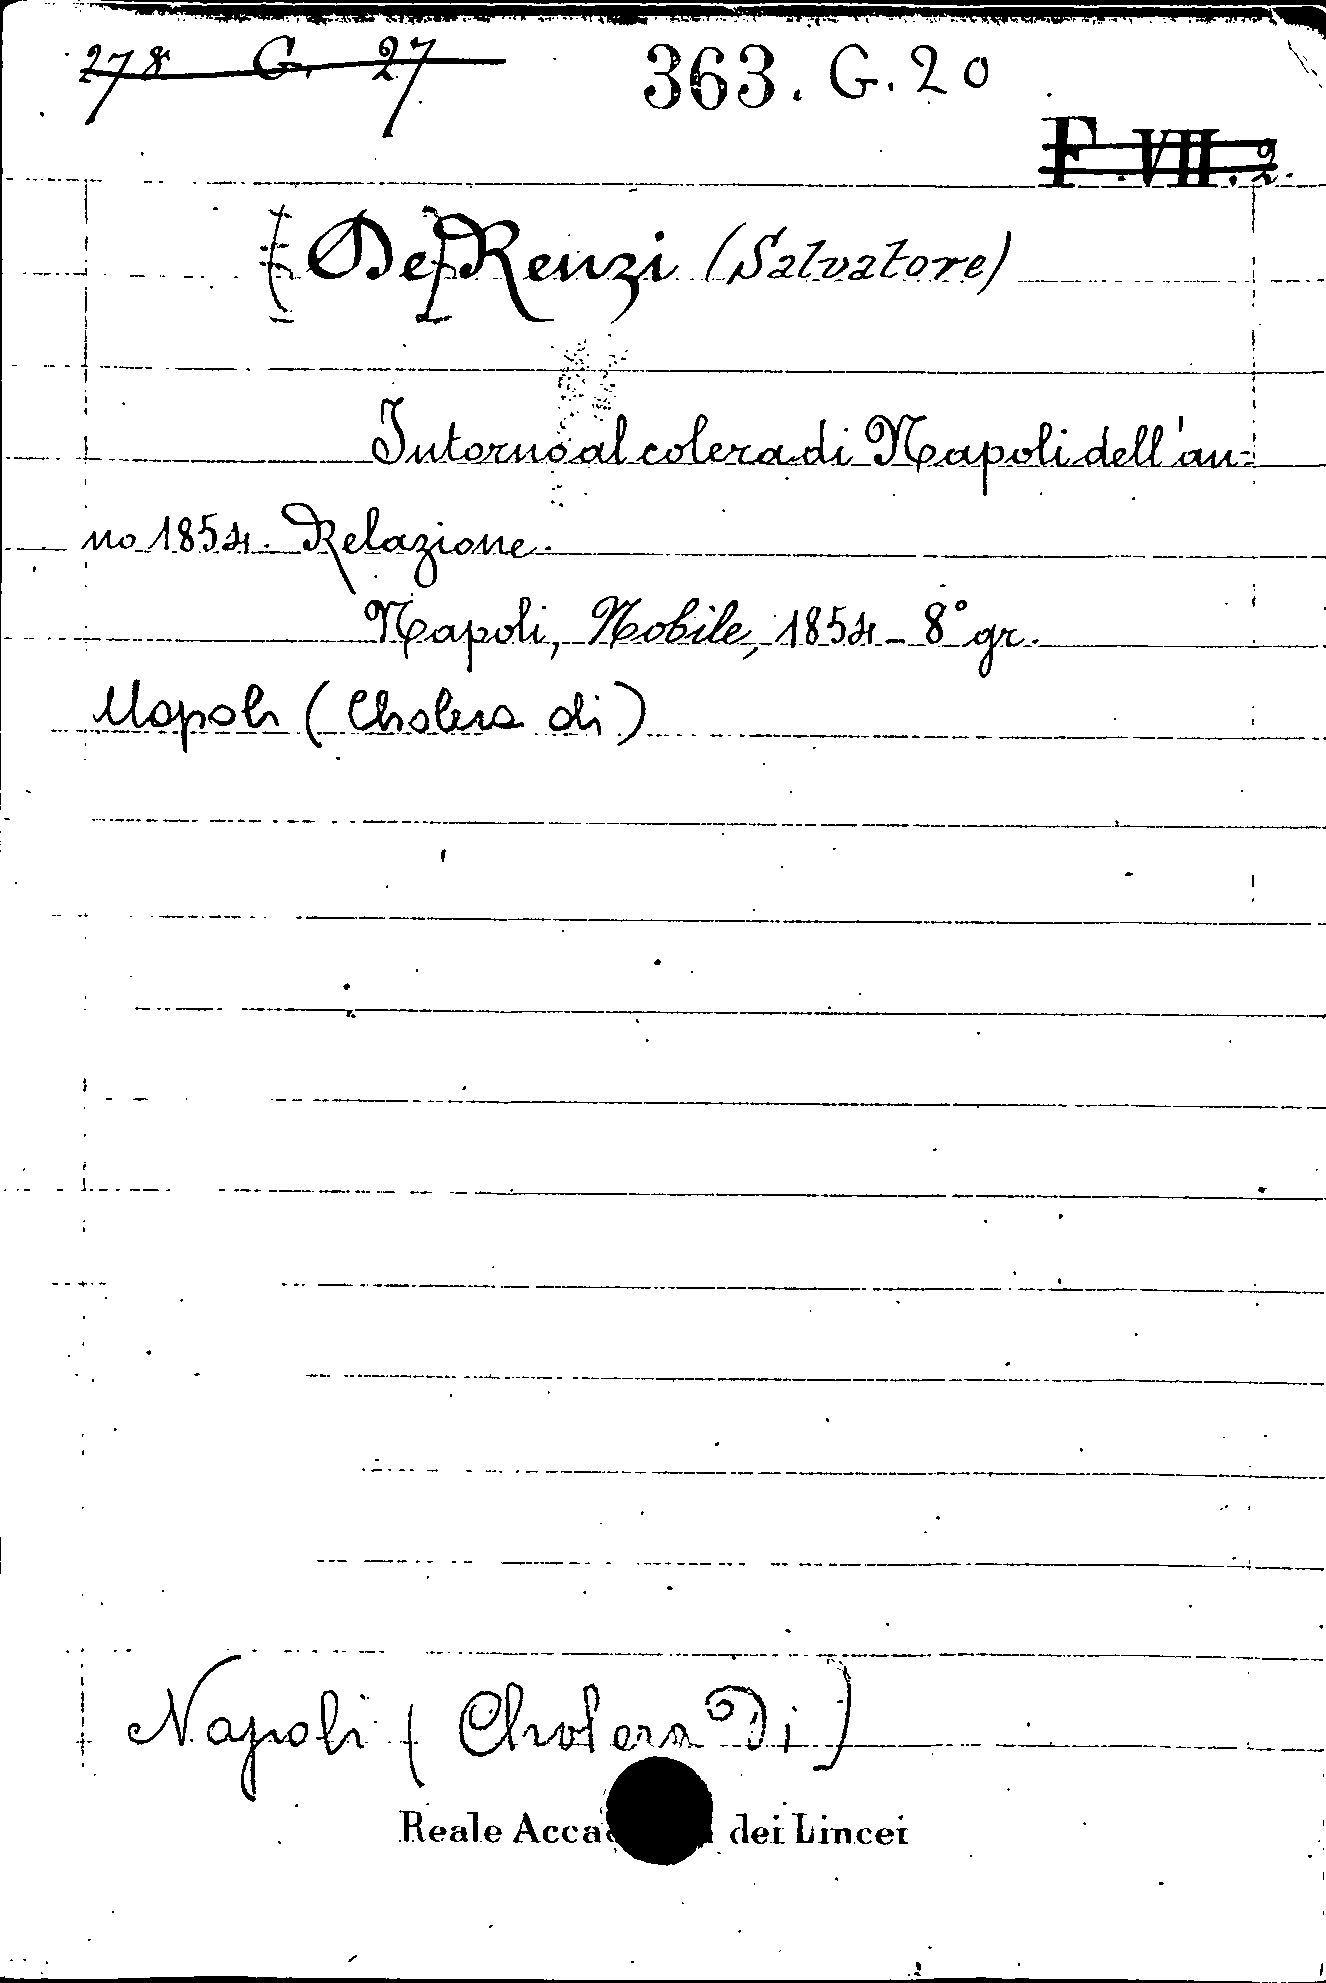 278 G. 27 363. G. 20
F. VII. 2.
[De] Renzi (Salvatore)
Intorno al colera di Napoli dell'an=
no 1854. Relazione.
Napoli, Nobile, 1854 - 8° gr.
Napoli (Cholera di)
Napoli (Cholera Di)
Reale Acca dei Lincei